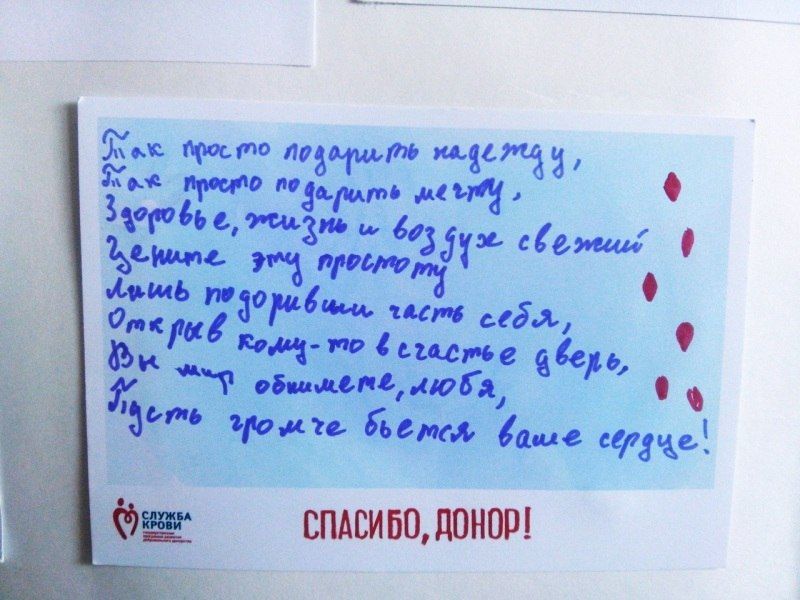 Так просто подарить надежду,
Так просто подарить мечту,
Здоровье, жизнь и воздух свежий
Цените эту простоту
Лишь подоривши часть себя,
Открыв кому-то в счастье дверь,
Вы мир обнимете, любя,
Пусть громче бьется ваше сердце!
СЛУЖБА
КРОВИ
СПАСИБО, ДОНОР!